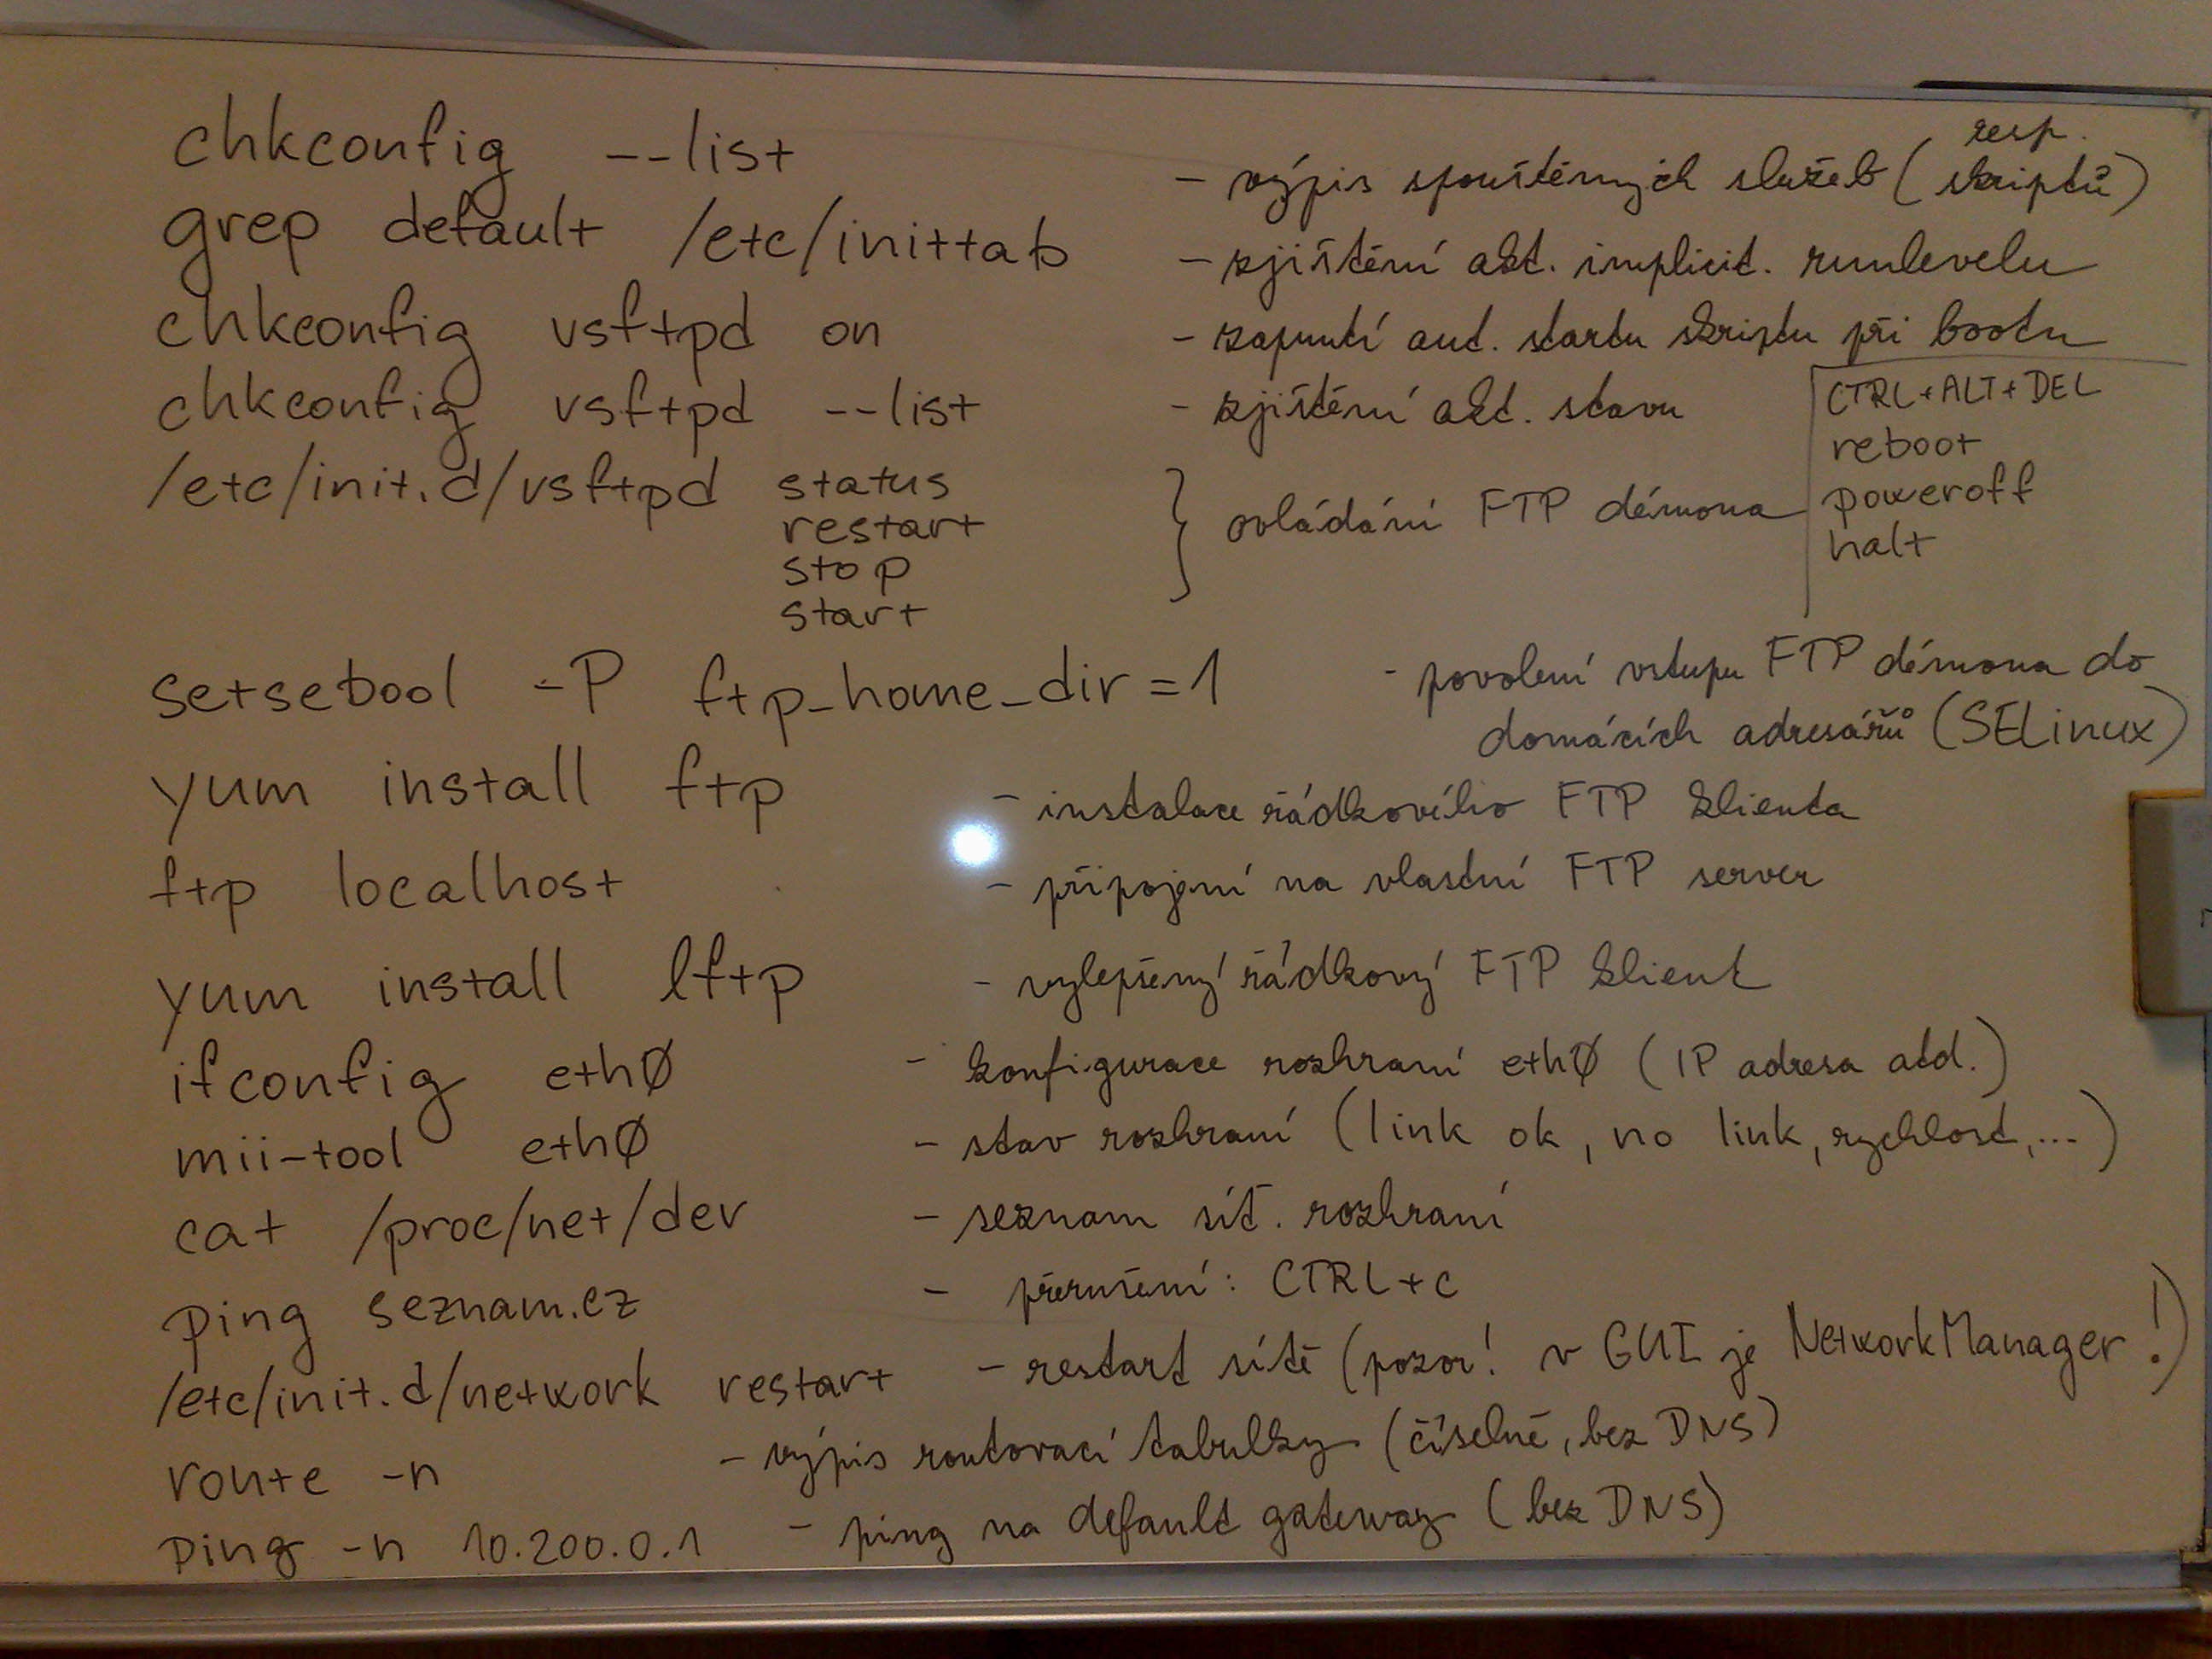 chkconfig --list - výpis spouštěných služeb (resp. skriptů)
grep default /etc/inittab - zjištění akt. implicit. runlevelu
chkconfig vsftpd on - zapnutí aut. startu skriptu při bootu
chkconfig vsftpd --list - zjištění akt. stavu
CTRL+ALT+DEL
reboot
poweroff
halt
/etc/init.d/vsftpd status
restart
stop
start
} ovládání FTP démona
setsebool -P ftp_home_dir=1 - povolení vstupu FTP démona do
domácích adresářů (SELinux)
yum install ftp - instalace řádkového FTP klienta
ftp localhost - připojení na vlastní FTP server
yum install lftp - vylepšený řádkový FTP klient
ifconfig eth0 - konfigurace rozhraní eth0 (IP adresa atd.)
mii-tool eth0 - stav rozhraní (link ok, no link, rychlost,...)
cat /proc/net/dev - seznam síť. rozhraní
ping seznam.cz - přerušení: CTRL+C
/etc/init.d/network restart - restart sítě (pozor! v GUI je NetworkManager!)
route -n - výpis routovací tabulky (číselně, bez DNS)
ping -n 10.200.0.1 - ping na default gateway (bez DNS)